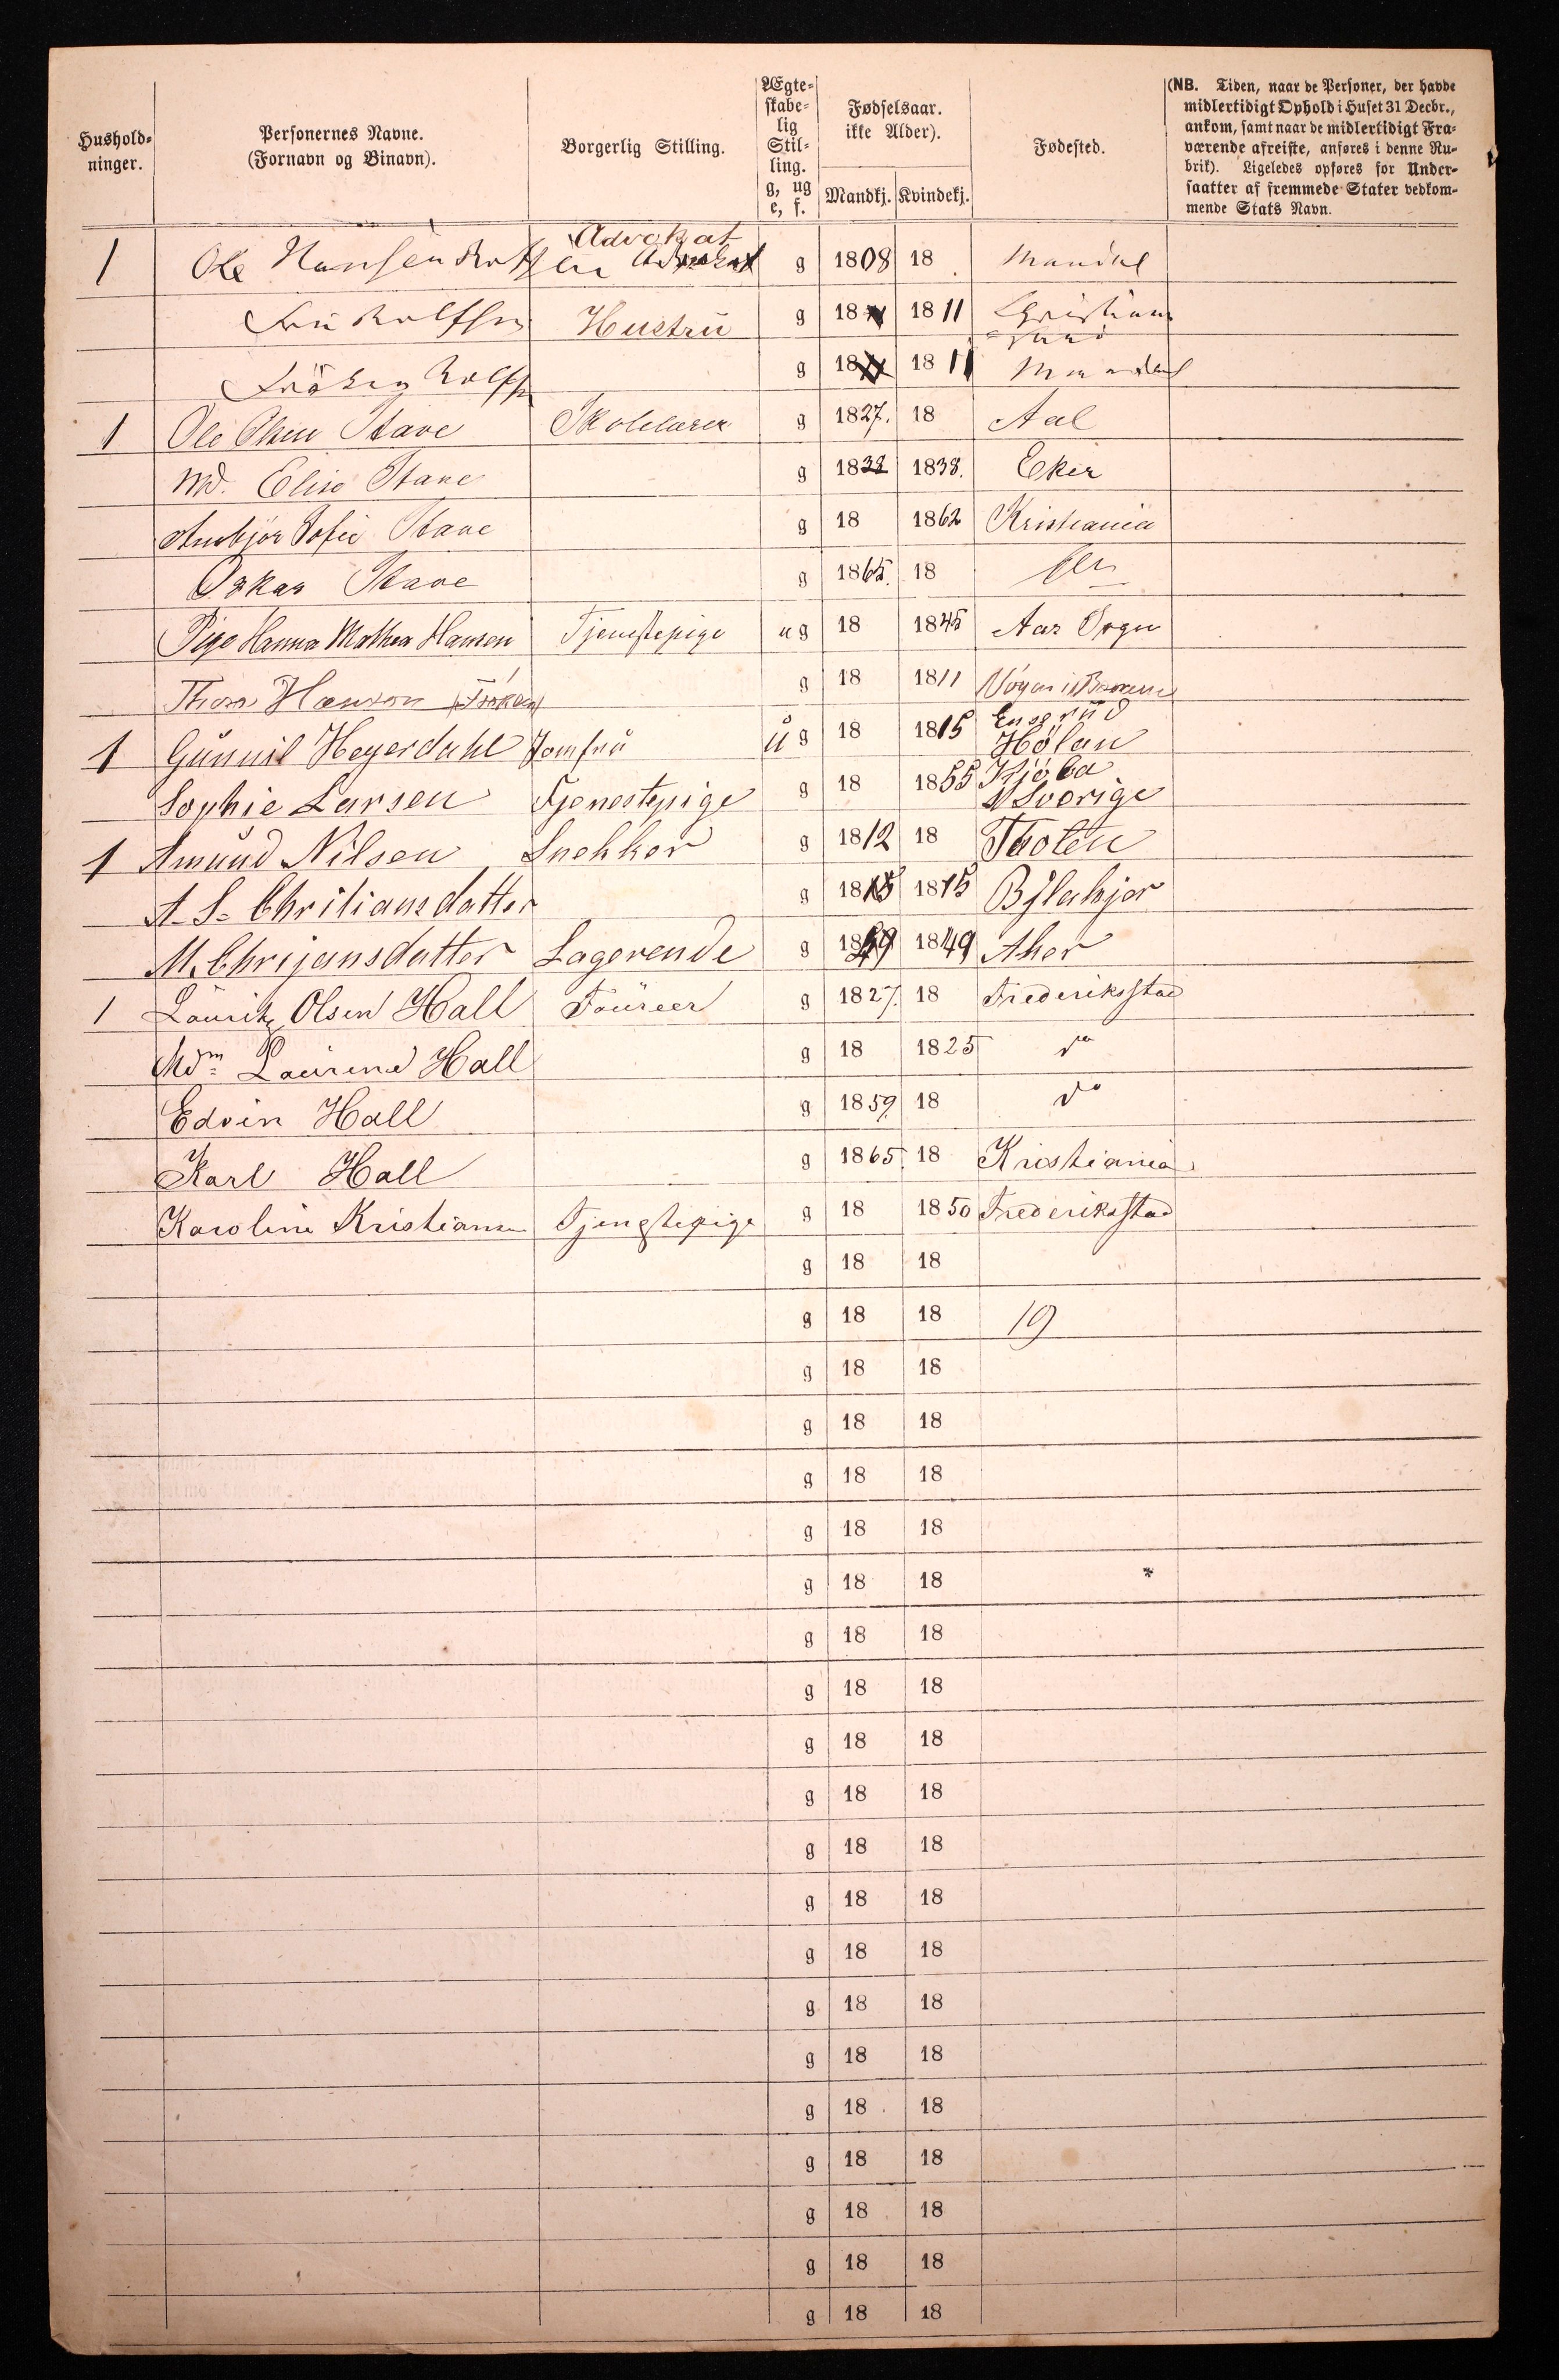 Hushold-
ninger.
Personernes Navne.
(Fornavn og Binavn).
Borgerlig Stilling.
Ægte-
skabe-
lig
Stil-
ling.
g, ug
e, f.
Fødselsaar.
ikke Alder).
Mandkj. Kvindekj.
Fødested.
(NB. Tiden, naar de Personer, der havde
midlertidigt Ophold i Huset 31 Decbr.,
ankom, samt naar de midlertidigt Fra-
værende afreiste, anføres i denne Ru-
brik). Ligeledes opføres for Under-
saatter af fremmede Stater vedkom-
mende Stats Navn.
Advokat
1 Ole Hansen Rolfsen Advokat g 1808 18 Mandal
Fru Rolffsen Hustru g 18 1811 Christian
sand
Fröken Rolffsen g 18 1811 Mandal
1 Ole Olsen Stave Skolelærer g 1827. 18 Aal
Md. Elise Stave g 1838 1838. Eker
Sofie Stave g 18 1862 Kristiania
Oskar Stave g 1865. 18
Pige Hanna Mathea Hansen Tjenestepige ug 18 1845 Aas Sogn
Thora Hanson (Fröken) g 18 1811
Enserud
1 Gunnil Heyerdahl Jomfru ug 18 1815 Hölan
Sophie Larsen Tjenestepige g 18 1855 Sverige
1 Amund Nilsen Snekker g 1812 18 Thoten
A. S. Chritiansdatter g 1815 1815
M. Chrijansdatter Lagerende g 1849 1849 Aker
1 Lauritz Olsen Hall g 1827. 18 Frederiksstad
Mdm Laurine Hall g 18 1825 do
Edvin Hall g 1859. 18 do
Karl Hall g 1865. 18 Kristiania
Karoline Kristiansen Tjenestepige g 18 1850 Frederiksstad
g 18 18
g 18 18 19
g 18 18
g 18 18
g 18 18
g 18 18
g 18 18
g 18 18
g 18 18
g 18 18
g 18 18
g 18 18
g 18 18
g 18 18
g 18 18
g 18 18
g 18 18
g 18 18
g 18 18
g 18 18
g 18 18